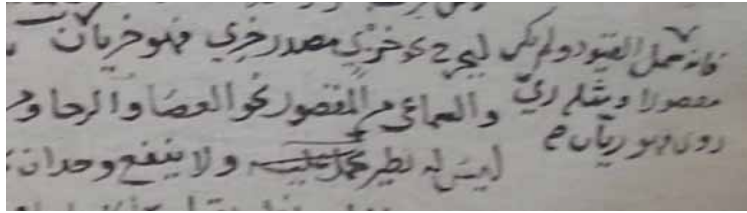 فانه كمل القيود ولم يكن ليجئ خزي مصدر خزي فهو خزيان
مقصورا ومثله ري والسماعي من المقصور نحو العصا والرحا و
روى فهو ريان صح ليس له نظير ولا ينفع وحدان